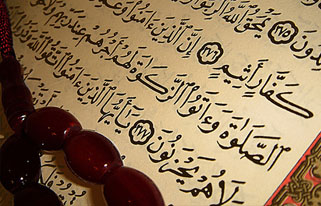 دُونَ ٢٧٥ يَمْحَقُ اللَّهُ الرِّبَوٰا
كَفَّارٍ أَثِيمٍ ٢٧٦ إِنَّ الَّذِينَ ءَامَنُوا
الصَّلَوٰةَ وَءَاتَوُا الزَّكَوٰةَ لَهُمْ أَجْرُهُمْ عِندَ رَبِّهِمْ
لَا هُمْ يَحْزَنُونَ ٢٧٧ يَٰأَيُّهَا الَّذِينَ ءَامَنُوا اتَّقُوا اللَّهَ